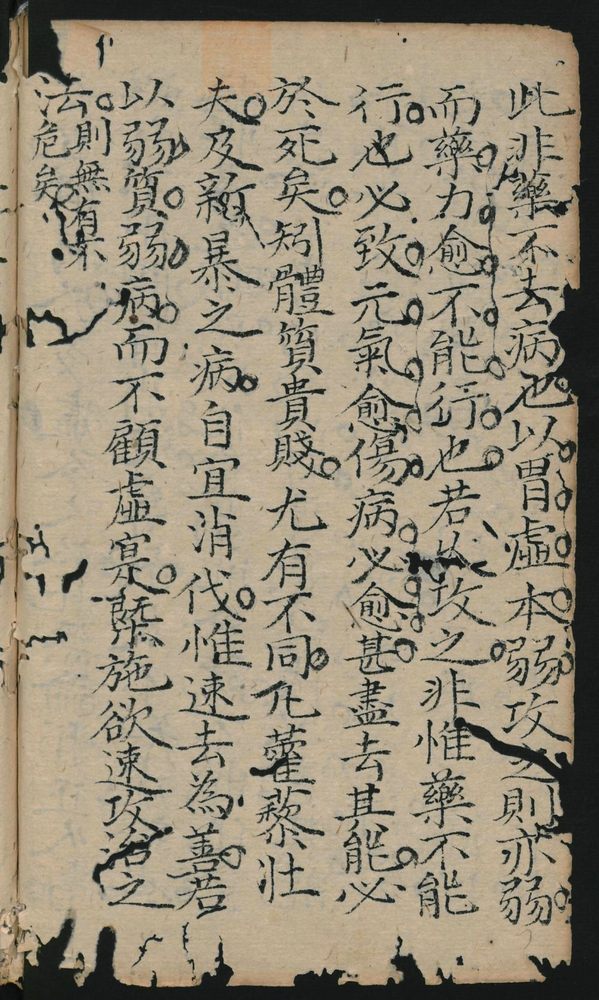 此非藥不去病也以胃虛本弱攻之則亦弱
而藥力愈不能行也若久攻之非惟藥不能
行也必致元氣愈傷病必愈甚盡去其能必
於死矣矧體質貴賤尤有不同凡藿藜壯
夫及新暴之病自宜消代惟速去為善若
以弱質弱病而不顧虛寔槩施欲速攻治之
法則無有不
危矣